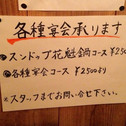 各種宴会承ります
●スンドゥブ花魁鍋コース ¥250
●各種宴会コース ¥2500より
※スタッフまでお問い合せ下さい。